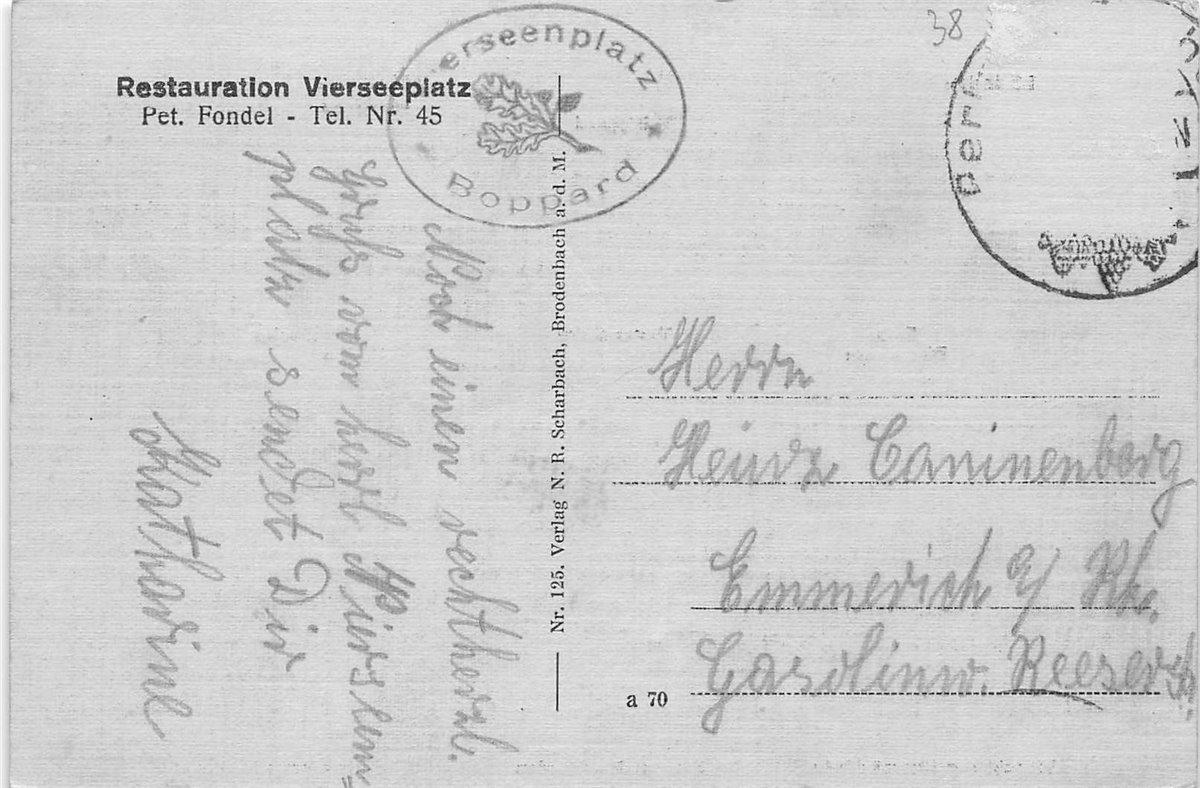 38
Restauration Vierseeplatz
Pet. Fondel - Tel. Nr. 45
Vierseenplatz
Boppard
Noch einen rechtherzl.
Gruß vom herrl. Vierseen=
platz sendet Dir
Katharine
Nr. 125. Verlag N. R. Scharbach, Brodenbach a. d. M.
Herrn
Heinz Canninenberg
Emmerich a/ Rh.
Gasolinw. Reeserstr.
a 70